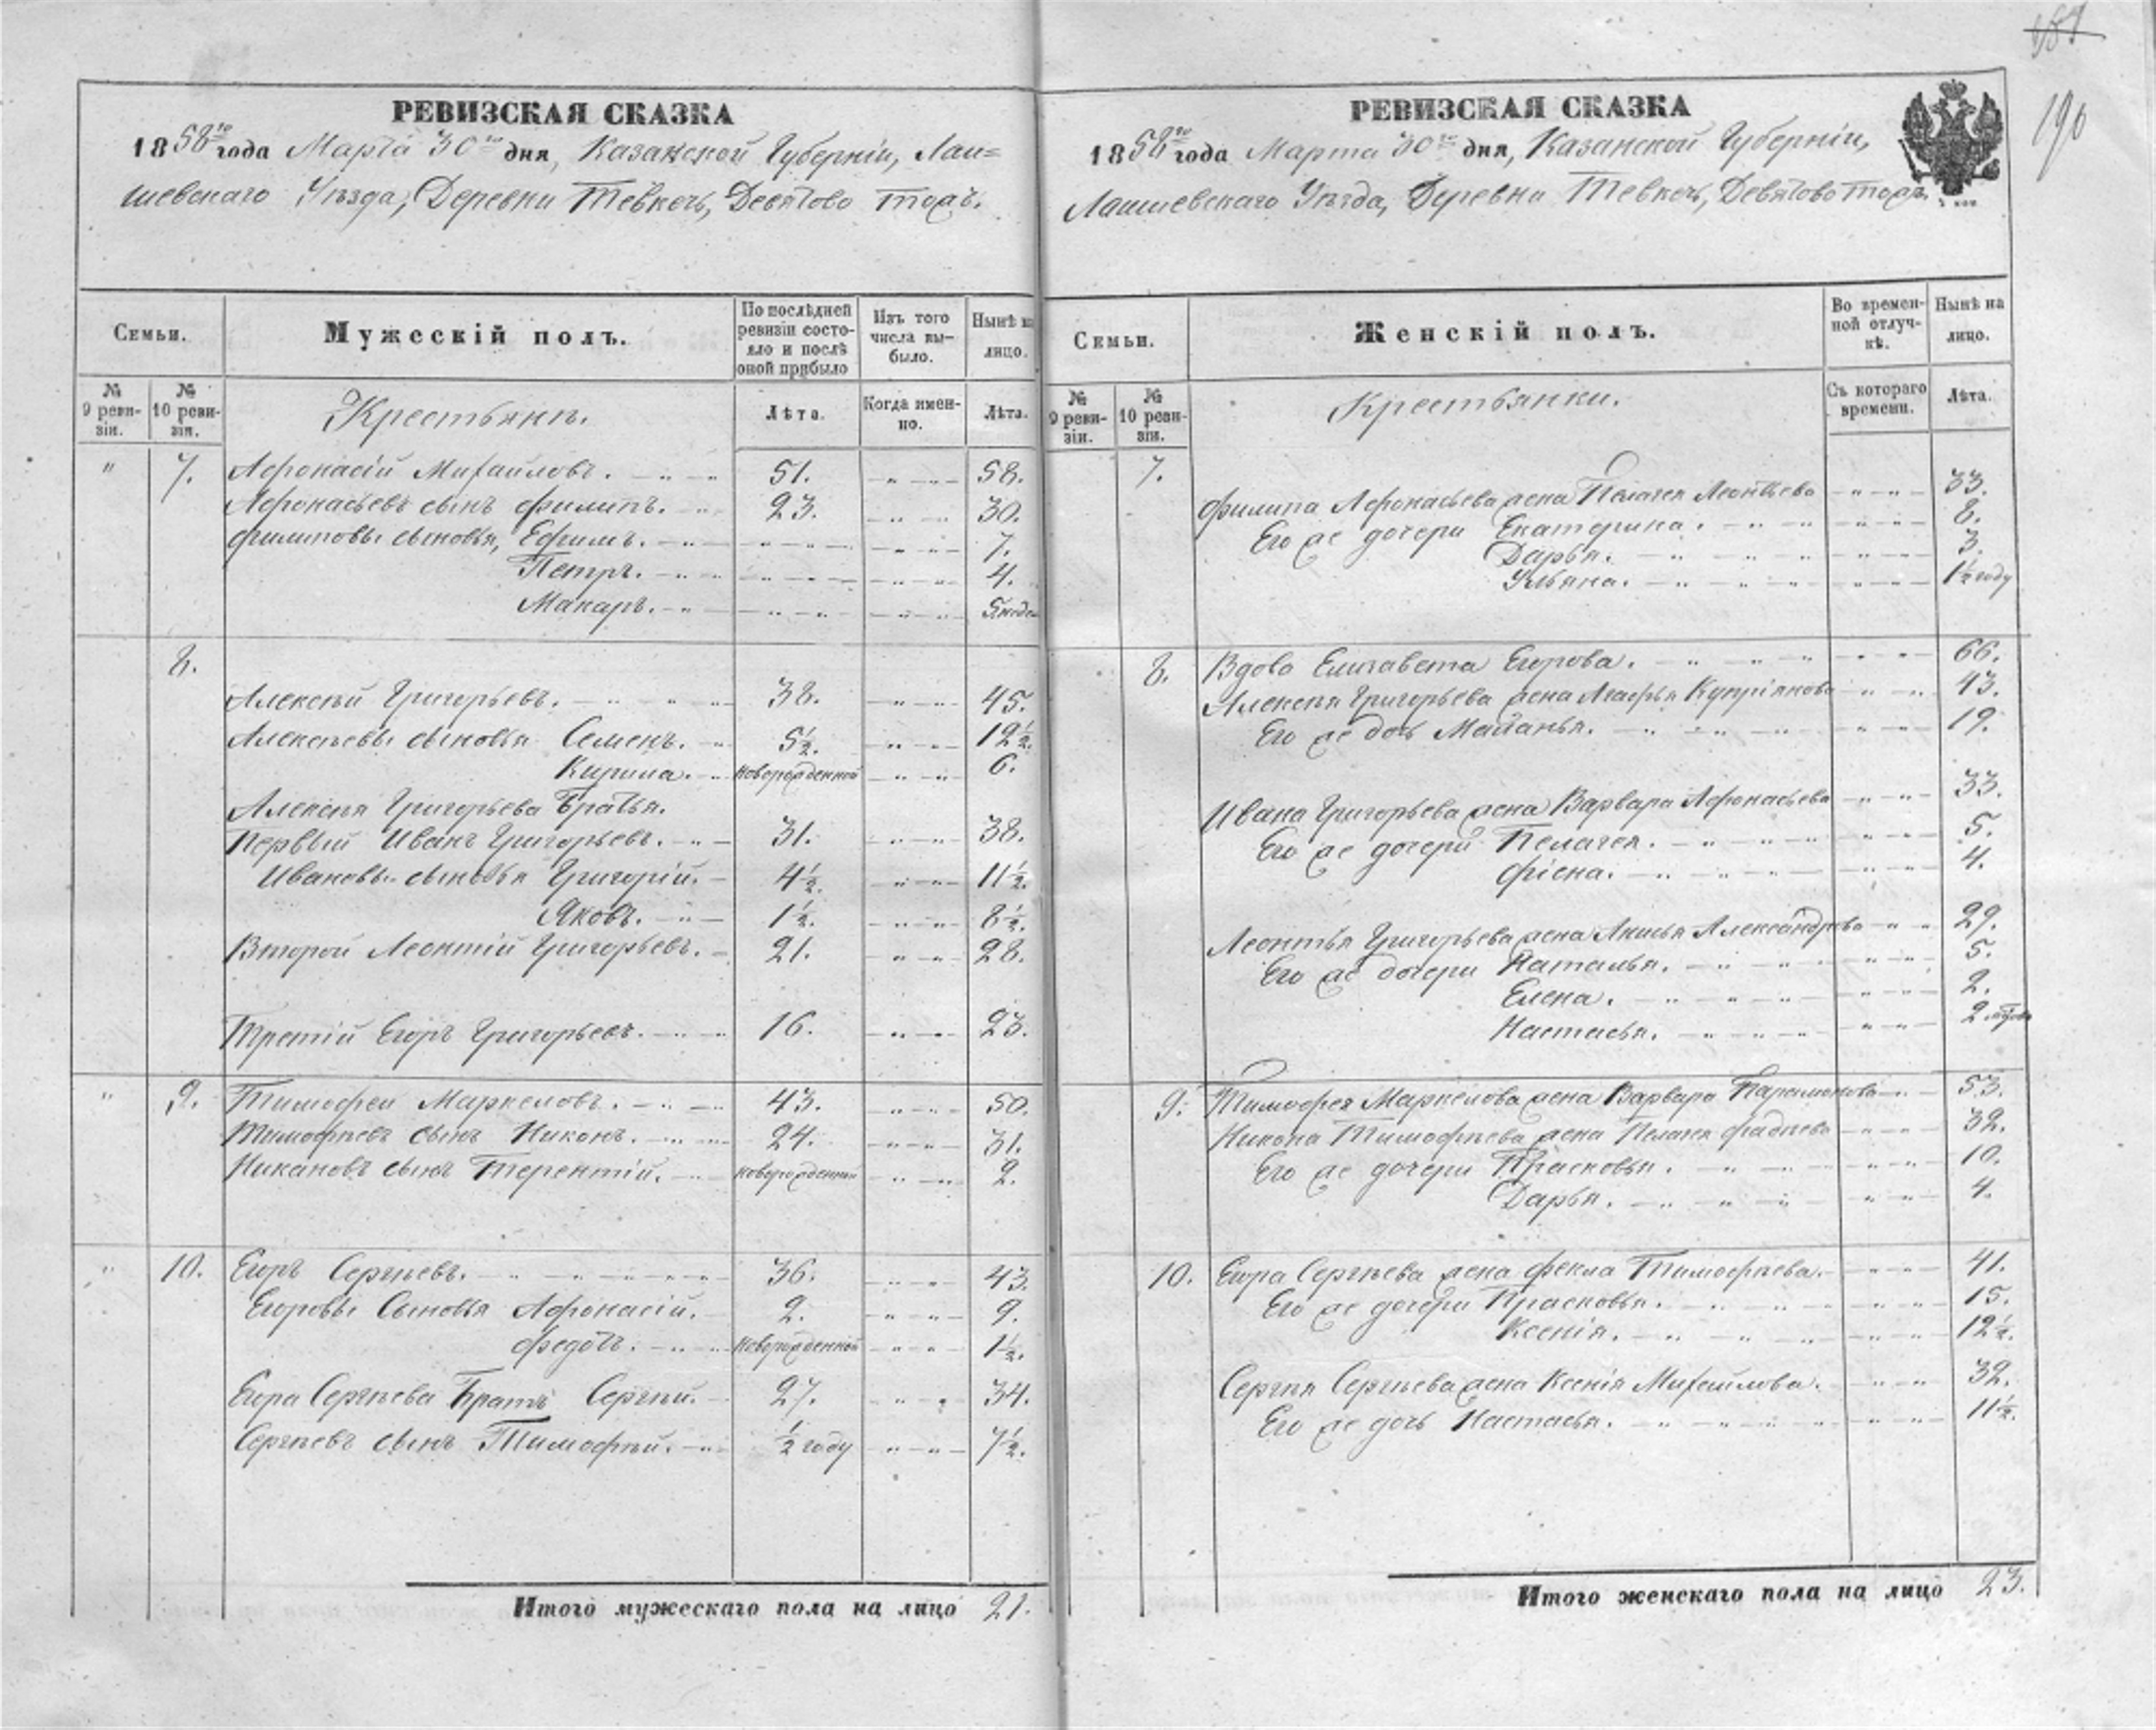 187
190
РЕВИЗСКАЯ СКАЗКА
1858го года Марта 30го дня, Казанской Губерніи, Лаи=
шевскаго Уѣзда, Деревни Тевкечь, Девятово тожъ.
Семьи.
Мужескій полъ.
По послѣдней ревизіи состояло и послѣ оной прибыло
Изъ того числа выбыло.
Нынѣ на лицо.
№ 9 ревизіи.
№ 10 ревизіи.
Крестьянъ.
Лѣта.
Когда именно.
Лѣта.
" 7. Афонасій Михайловъ. 51. 58.
Афонасьевъ сынъ Филипъ. 23. 30.
Филиповы сыновья, Ефимъ. 7.
Петръ. 4.
Макаръ. 5 недель
8.
Алексѣй Григорьевъ. 38. 45.
Алексѣевы сыновья Семенъ. 5½. 12½.
Кирила. новорожденной 6.
Алексѣя Григорьева братья.
Первый Иванъ Григорьевъ. 31. 38.
Ивановы сыновья Григорій. 4½. 11½.
Яковъ. 1½. 8½.
Второй Леонтій Григорьевъ. 21. 28.
Третій Егоръ Григорьевъ. 16. 23.
" 9. Тимофей Маркеловъ. 43. 50.
Тимофѣевъ сынъ Никонъ. 24. 31.
Никановъ сынъ Терентій. новорожденной 2.
" 10. Егоръ Сергѣевъ. 36. 43.
Егоровы Сыновья Афонасій. 2. 9.
Федотъ. новорожденной 1½.
Егора Сергѣева Братъ Сергѣй. 27. 34.
Сергѣевъ сынъ Тимофѣй. ½ году 7½.
Итого мужескаго пола на лицо 21.
РЕВИЗСКАЯ СКАЗКА
1858го года Марта 30го дня, Казанской Губерніи,
Лаишевскаго Уѣзда, Деревни Тевкечь, Девятово тожъ.
Семьи.
Женскій полъ.
Во временной отлучкѣ.
Нынѣ на лицо.
№ 9 ревизіи.
№ 10 ревизіи.
Крестьянки.
Съ котораго времени.
Лѣта.
7.
Филипа Афонасьева жена Пелагея Леонтьева 33.
Его же дочери Екатерина. 8.
Дарья. 3.
Ульяна. 1½ году
8. Вдова Елизавета Егорова. 66.
Алексѣя Григорьева жена Агафья Купріянова 43.
Его же дочь Маланья. 19.
Ивана Григорьева жена Варвара Афонасьева 33.
Его же дочери Пелагея. 5.
Фіона. 4.
Леонтья Григорьева жена Анисья Александрова 29.
Его же дочери Наталья. 5.
Елена. 2.
Настасья. 2
9. Тимофея Маркелова жена Варвара Парамонова 53.
Никона Тимофѣева жена Пелагея Фадѣева 32.
Его же дочери Прасковья. 10.
Дарья. 4.
10. Егора Сергѣева жена Фекла Тимофѣева. 41.
Его же дочери Прасковья. 15.
Ксенія. 12½.
Сергѣя Сергѣева жена Ксенія Михайлова. 32.
Его же дочь Настасья. 11½.
Итого женскаго пола на лицо 23.